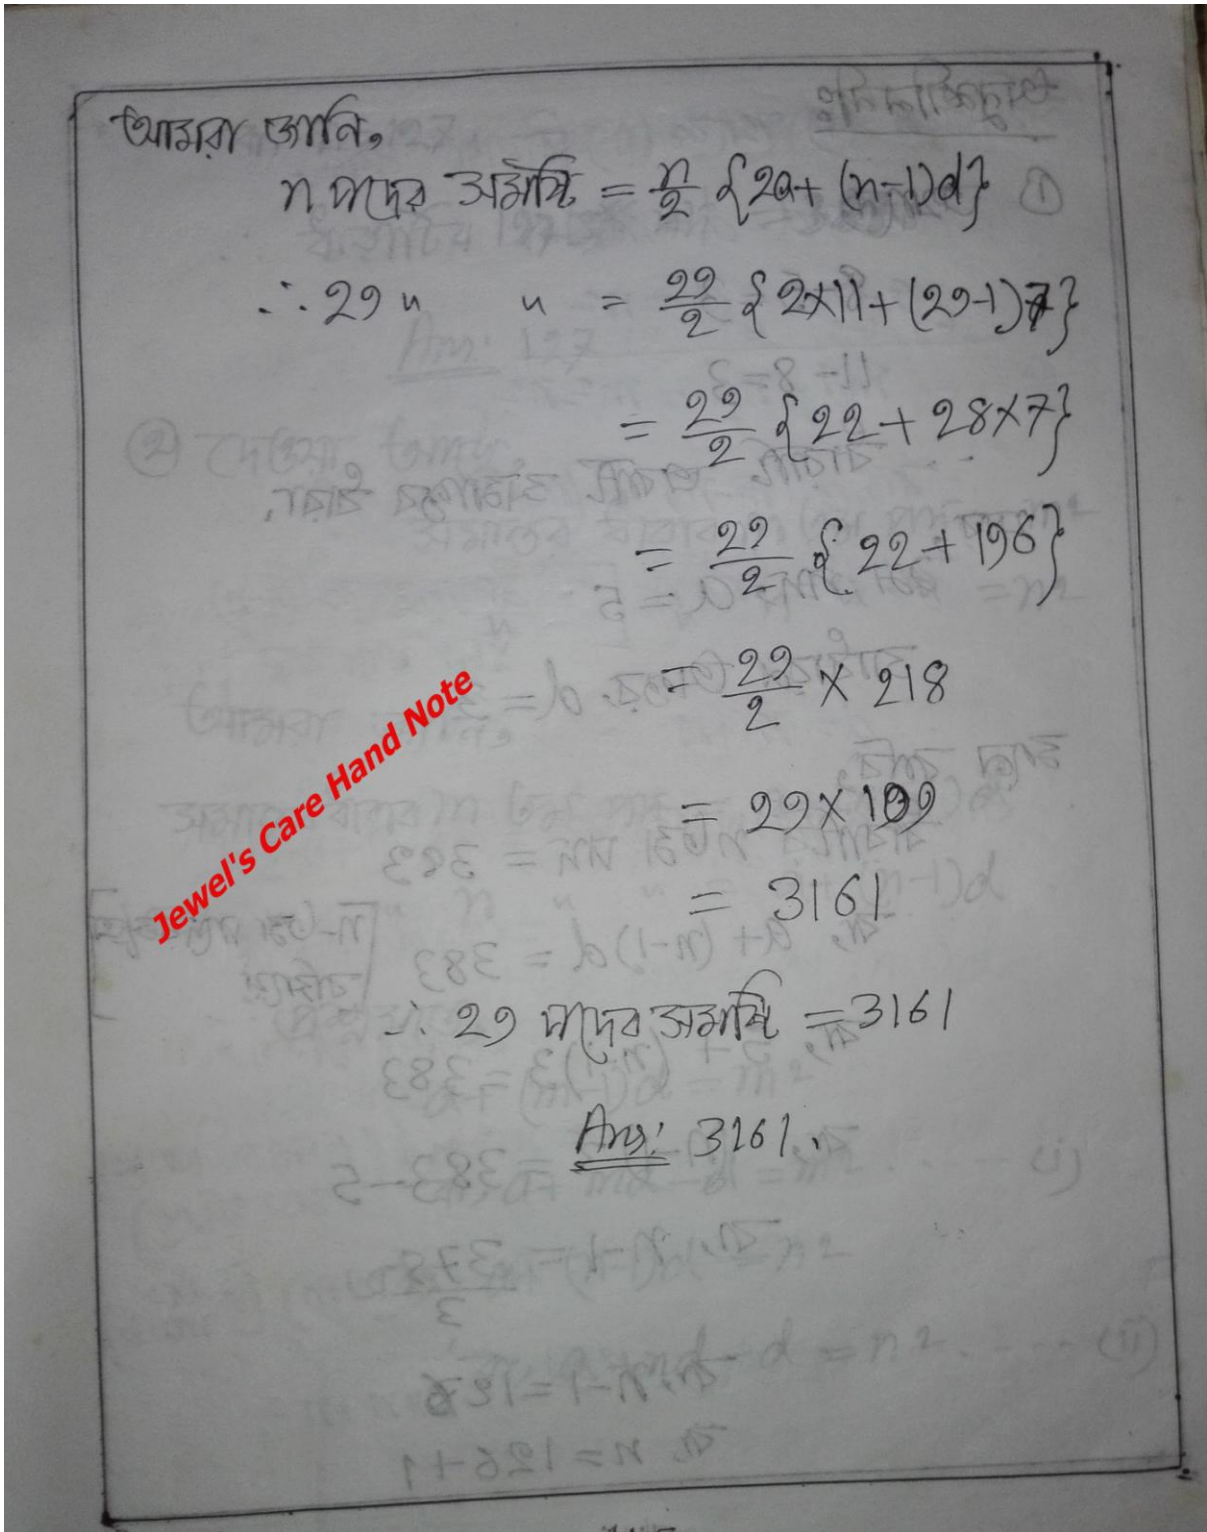 আমরা জানি,
n পদের সমষ্টি = n/2 {2a + (n-1)d}
∴ 29 " " = 29/2 {2×11 + (29-1)7}
= 29/2 {22 + 28×7}
= 29/2 {22 + 196}
= 29/2 × 218
= 29 × 109
= 3161
∴ 29 পদের সমষ্টি = 3161
Ans: 3161.
Jewel's Care Hand Note